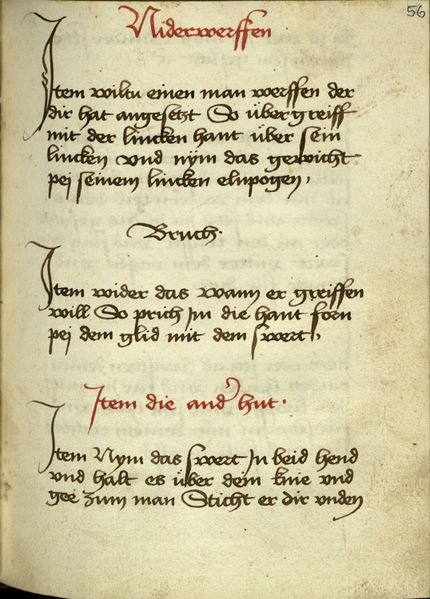 56
Niderwerffen
Item wiltu einen man werffen der
dir hat angesetzt So übergreiff
mit der lincken hant über sein
lincken vnd nÿm das gewicht
pei seinem lincken elnpogen,
Bruch.
Item wider das wann er greiffen
will So prich Im die hant forn
pei dem glid mit dem swert,
Item die and' hut.
Item Nym das swert In beid hend
vnd halt es über dem knie vnd
gee zum man Sticht er dir vnden